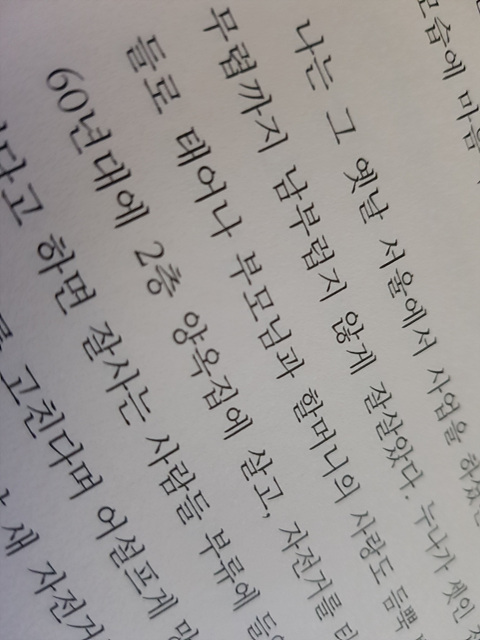 모습에 마음
나는 그 옛날 서울에서 사업을 하셨
무렵까지 남부럽지 않게 잘살았다. 누나가 셋인
들로 태어나 부모님과 할머니의 사랑도 듬뿍
60년대에 2층 양옥집에 살고, 자전거를
다고 하면 잘사는 사람들 부류에
고친다며 어설프게
새 자전거